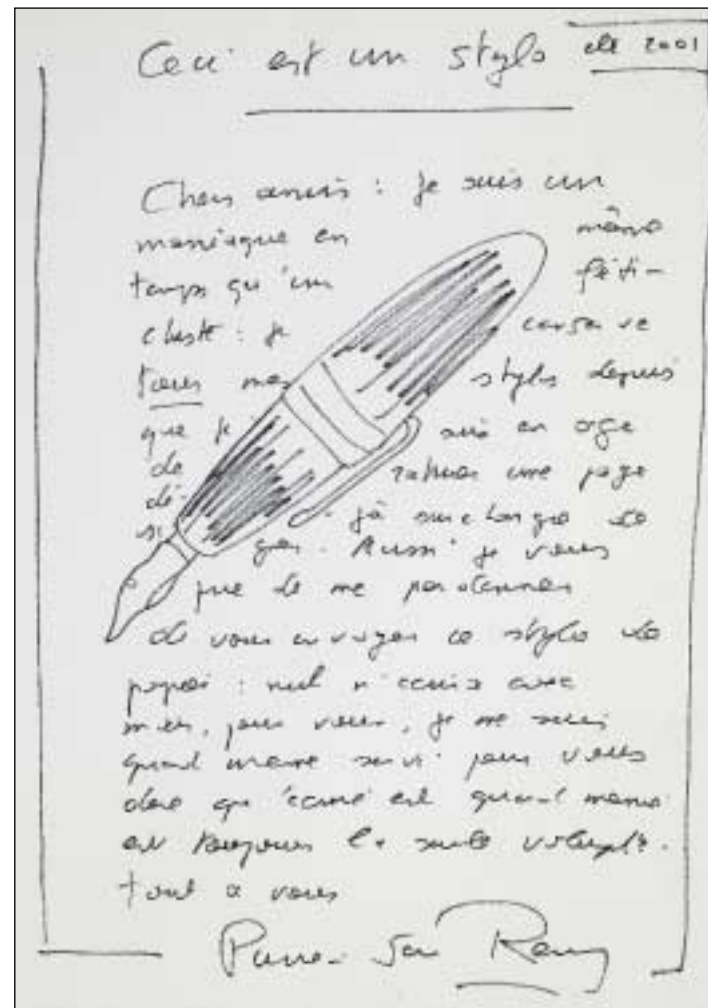 Ceci est un stylo été 2001
Chers amis : je suis un
maniaque en même
temps qu'un féti-
chiste : je conserve
tous mes stylos depuis
que je suis en âge
de raturer une page
dé- jà surchargée de
si- gnes. Aussi je vous
prie de me pardonner
de vous envoyer ce stylo de
papier : nul n'écrit avec
mais, pour vous, je me suis
quand même servi pour vous
dire qu'écrire est quand même
est toujours la seule volupté.
tout à vous
Pierre-Jean Remy